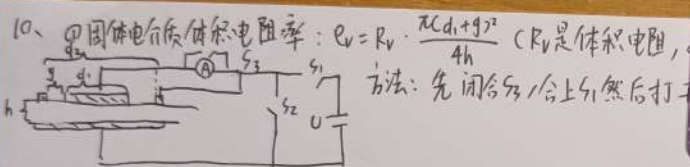 10、①固体电介质体积电阻率：ρv = Rv · π(d₁+g)²/4h （Rv是体积电阻，
方法：先闭合S3，合上S1然后打
d₂
A
S3
S1
g
d₁
h
S2
U